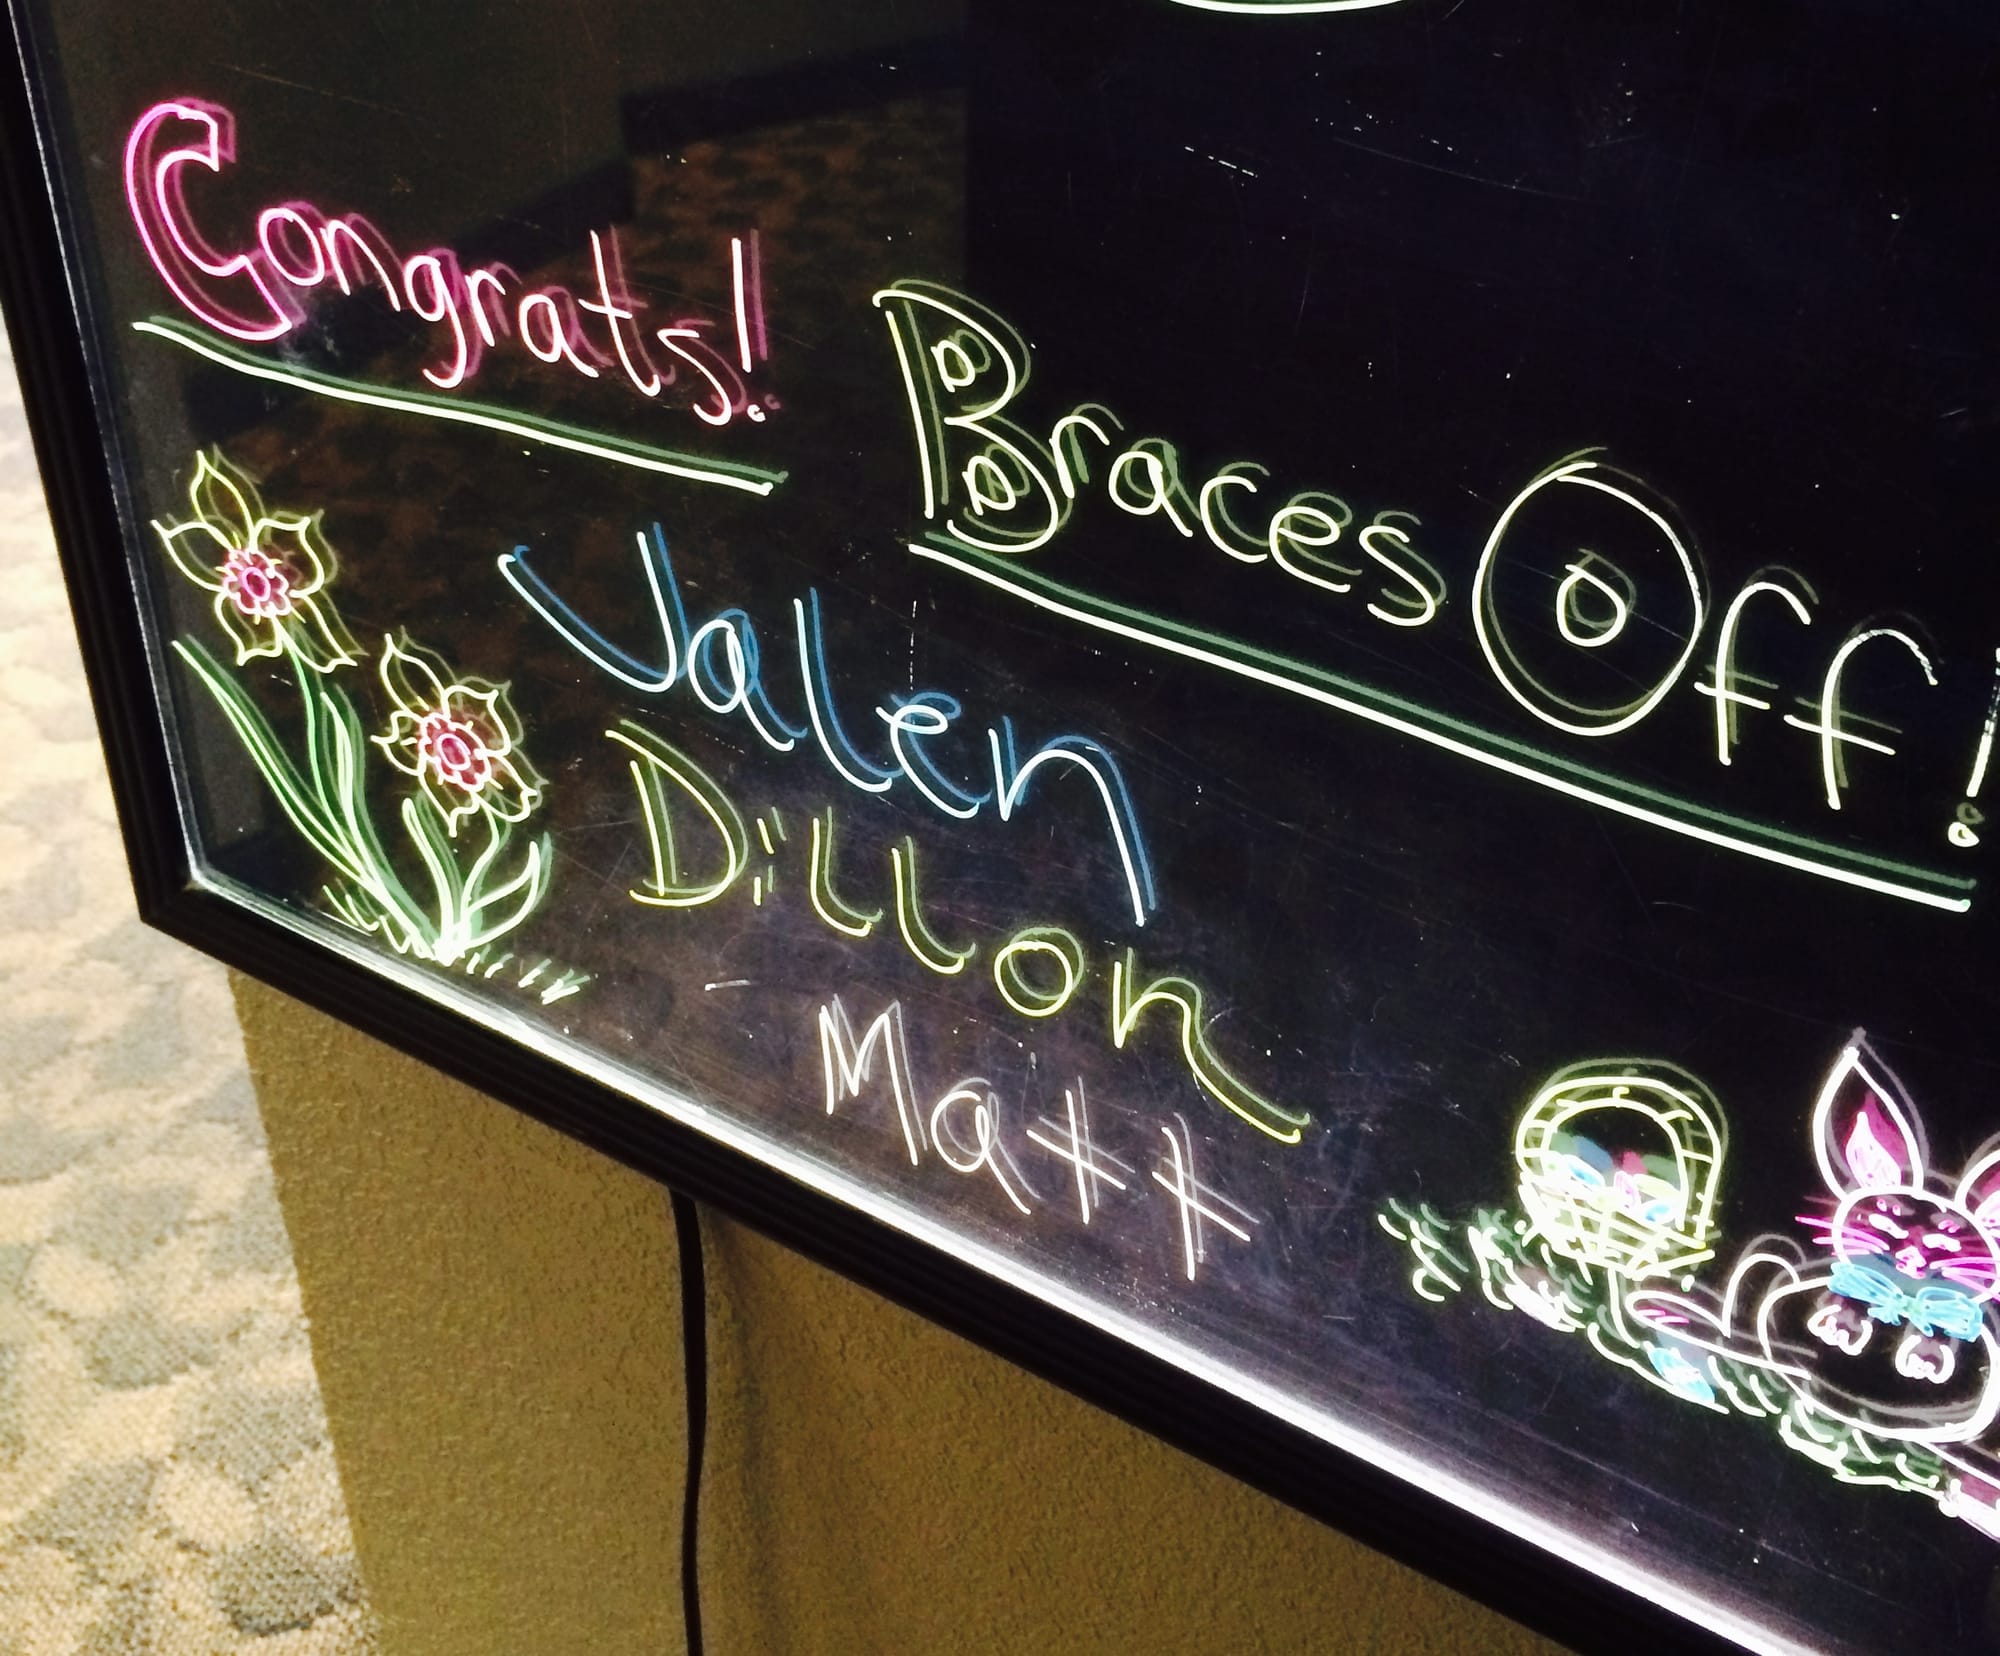 Congrats! Braces Off!
Valen
Dillon
Matt